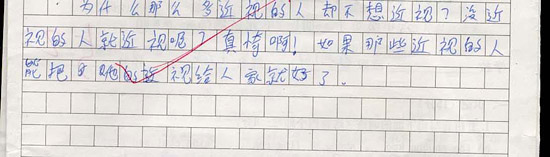 为什么那么多近视的人却不想近视？没近
视的人就近视呢？真奇啊！如果那些近视的人
能把的近视给人家就好了。